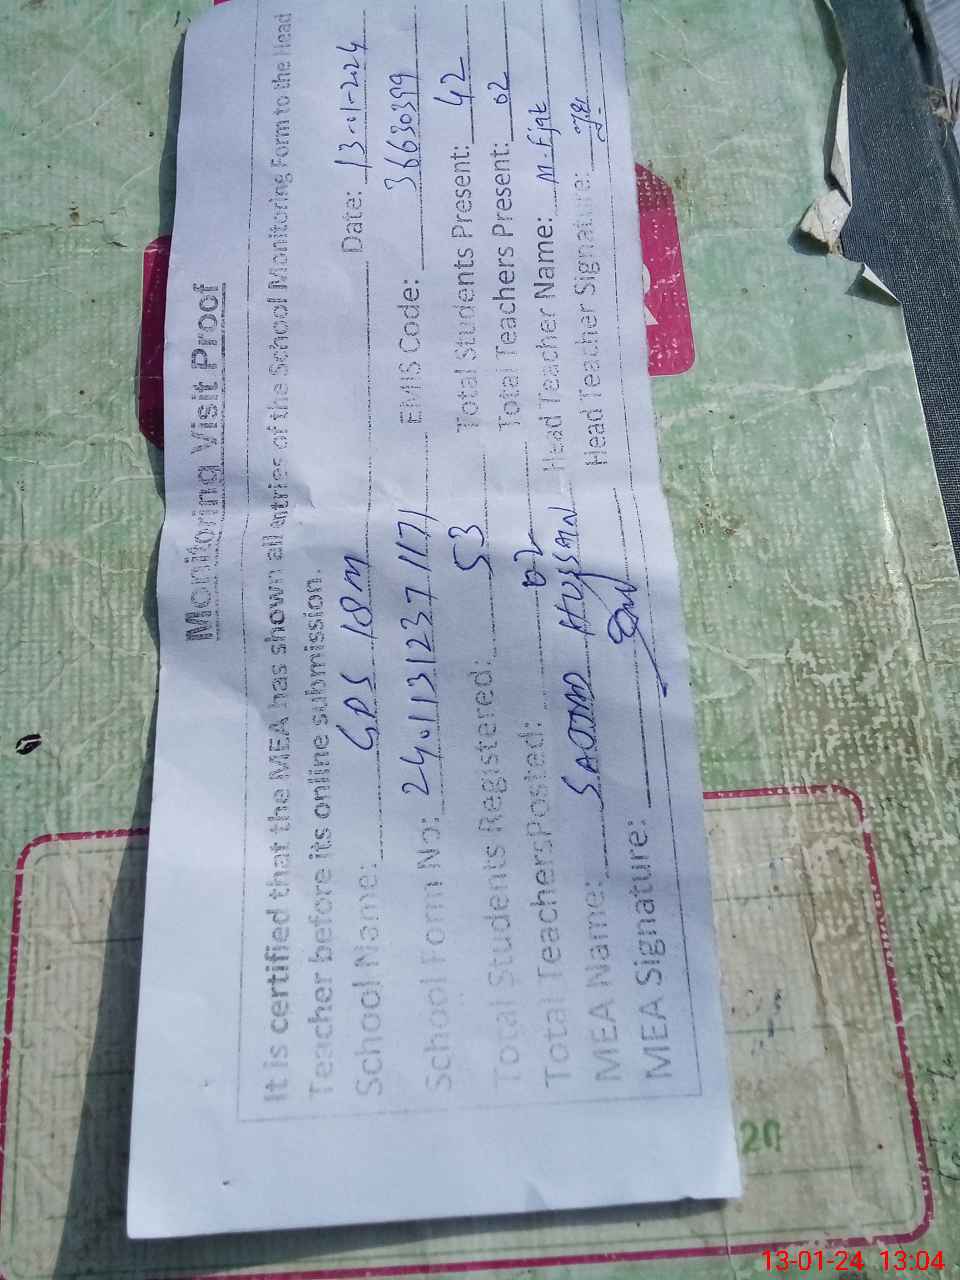 Monitoring Visit Proof
It is certified that the MEA has shown all entries of the School Monitoring Form to the Head
Teacher before its online submission.
School Name: GPS 18M Date: 13-01-2024
School Form No: 24011312371171 EMIS Code: 36630399
Total Students Registered: 53 Total Students Present: 42
Total Teachers Posted: 02 Total Teachers Present: 02
MEA Name: SAJJAD HUSSAIN Head Teacher Name: M.
MEA Signature: Head Teacher Signature:
20
13-01-24 13:04